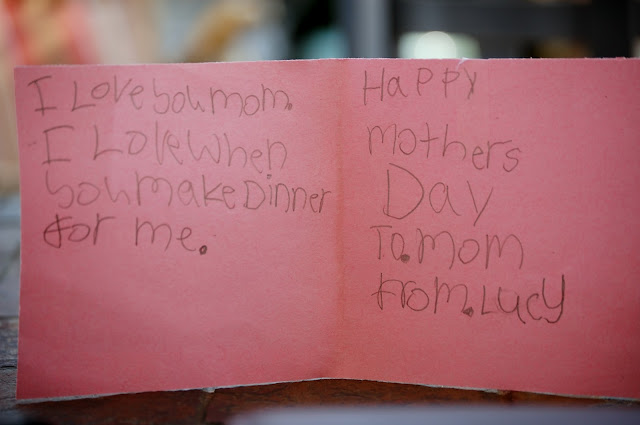 I Love you mom.
I Love When
you make Dinner
for me.
Happy
mothers
Day
To. mom
from. Lucy